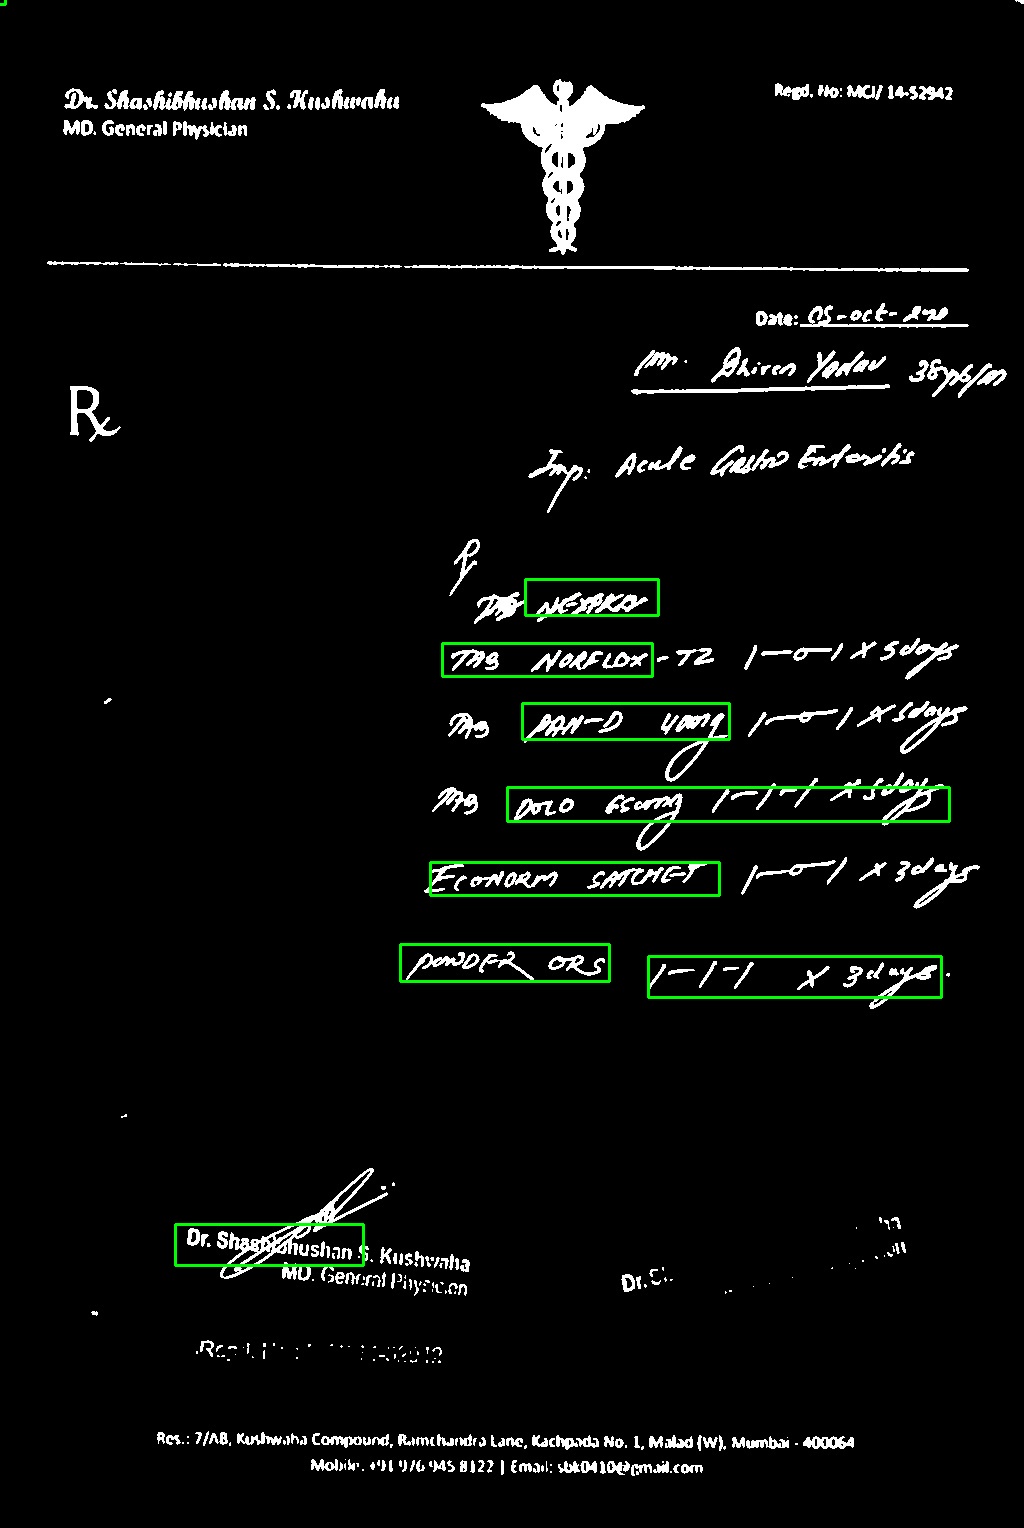 Dr. Shashibhushan S. Kushwaha
MD. General Physician
Regd. No: MCI/ 14-52942
Date: 05-oct-2020
Rx
Mr. Dhiren Yadav 38yrs/m
Imp: Acute Gastro Enteritis
Rx
TAB NORFLOX-TZ 1-0-1 X 5days
TAB PAN-D 40mg 1-0-1 X 5days
TAB DOLO 650mg 1-1-1 X 5days
ECONORM SATCHET 1-0-1 X 3days
POWDER ORS 1-1-1 X 3days.
Dr. Shashibhushan S. Kushwaha
MD. General Physician
Res.: 7/AB, Kushwaha Compound, Ramchandra Lane, Kachpada No. 1, Malad (W), Mumbai - 400064
Mobile: +91 976 945 8122 | Email: sbk0410@gmail.com